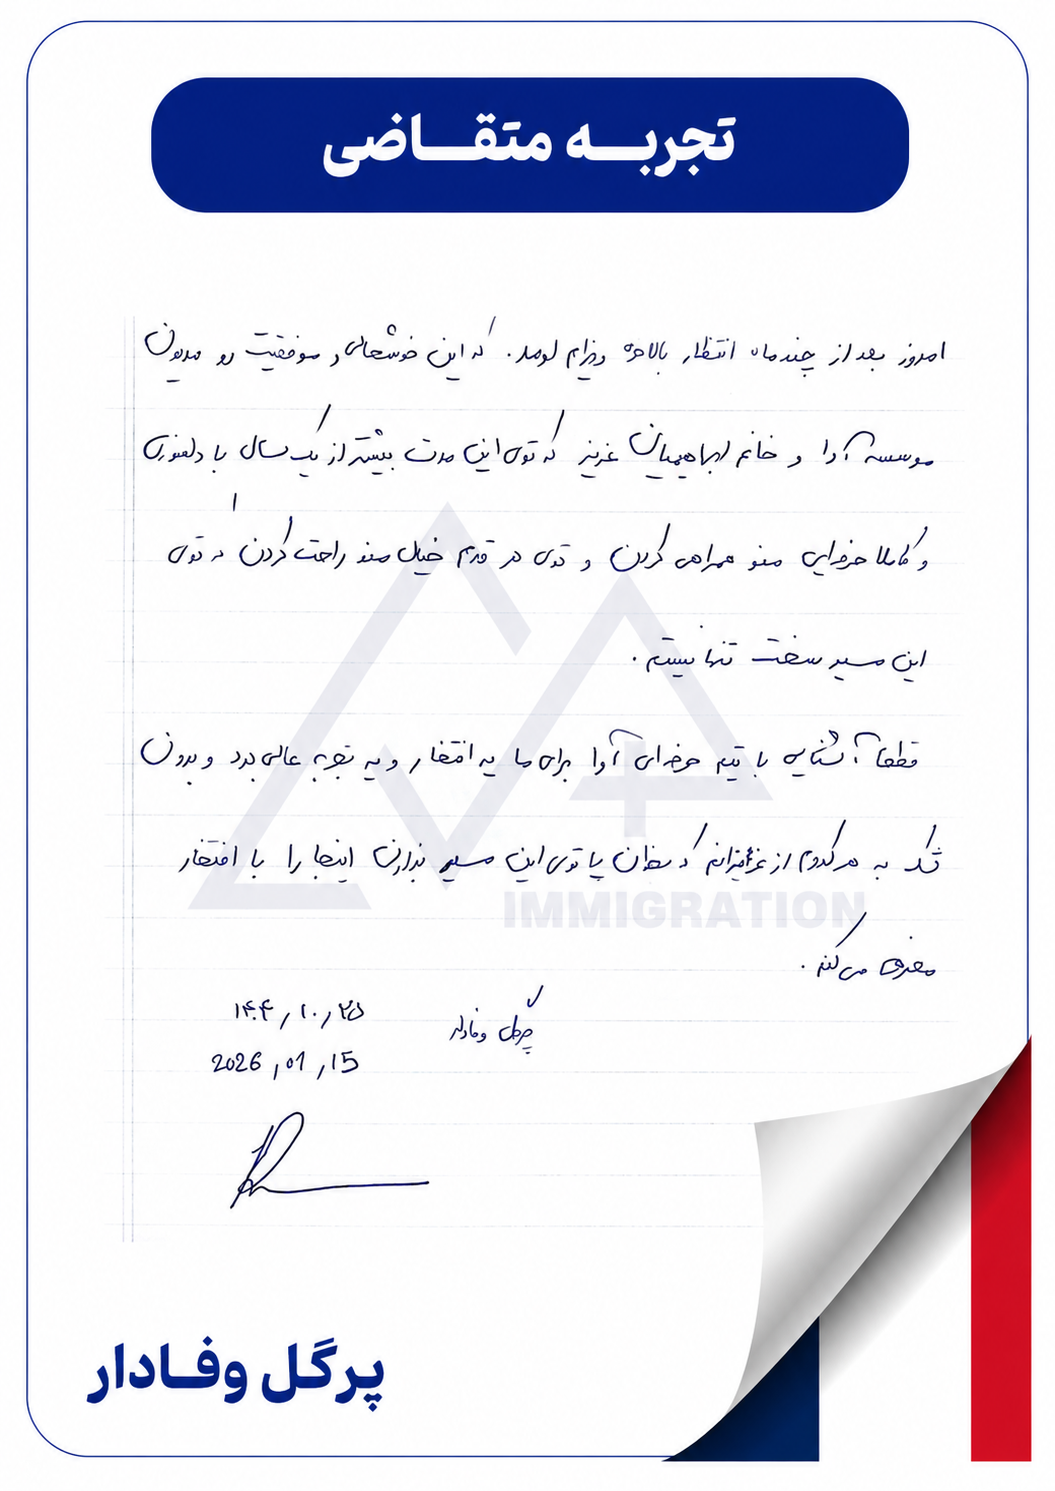 تجربه متقاضی
امروز بعد از چند ماه انتظار بالاخره ویزام اومد. که این خوشحالی و موفقیت رو مدیون
موسسه آوا و خانم ابراهیمیان عزیز که توی این مدت بیشتر از یک سال با دلسوزی
و کاملا حرفه‌ایی منو همراهی کردن و توی هر قدم خیال منو راحت کردن که توی
این مسیر سخت تنها نیستم.
قطعاً آشنایی با تیم حرفه‌ای آوا برای ما یه افتخار و یه تجربه عالی بود و بدون
شک به هر کدوم از عزیزانم که بخوان پا توی این مسیر بذارن اینجا را با افتخار
معرفی می‌کنم.
IMMIGRATION
پرگل وفادار
۱۴۰۴, ۱۰, ۲۵
2026, 01, 15
پرگل وفادار